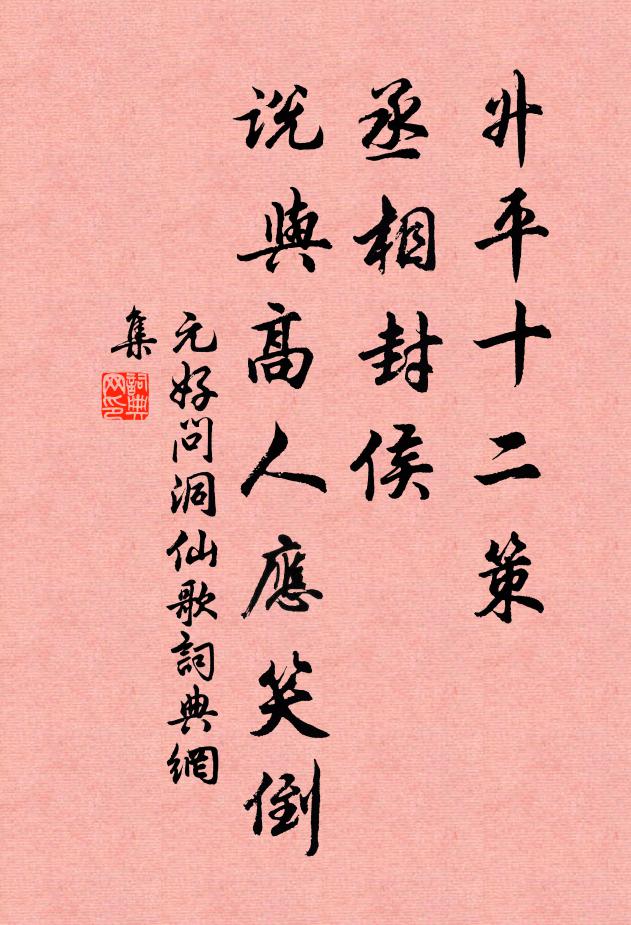 升平十二策
丞相封侯
説與高人應笑倒
元好问洞仙歌詞典網
集
詞典
网印